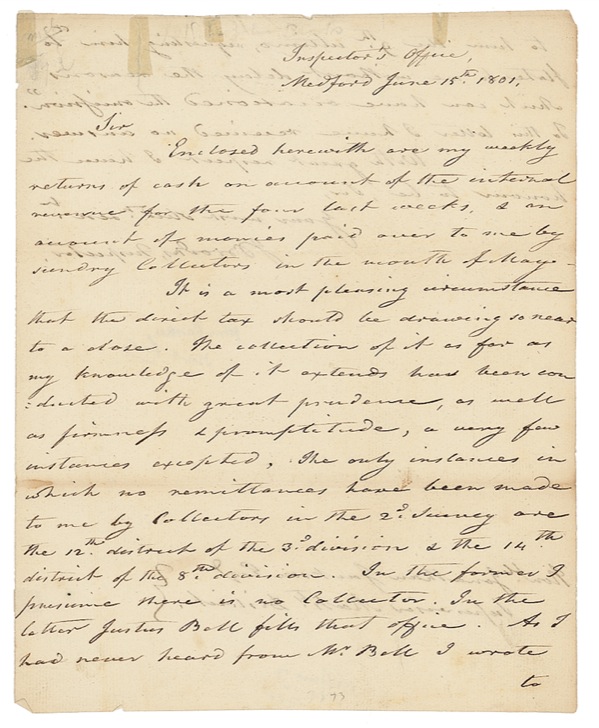 Inspector's Office,
Medford June 15th. 1801,
Sir
Enclosed herewith are my weekly
returns of cash on account of the internal
revenue for the four last weeks, & an
account of monies paid over to me by
sundry Collectors in the month of May.
It is a most pleasing circumstance
that the direct tax should be drawing so near
to a close. The collection of it as far as
my knowledge of it extends has been con
=ducted with great prudence, as well
as firmness & promptitude, a very few
instances excepted. The only instances in
which no remittances have been made
to me by Collectors in the 2d. Survey are
the 12th. district of the 3d. division & the 14th
district of the 8th. division. In the former I
presume there is no Collector. In the
latter Justus Bell fills that office. As I
had never heard from Mr. Bell I wrote
to
73